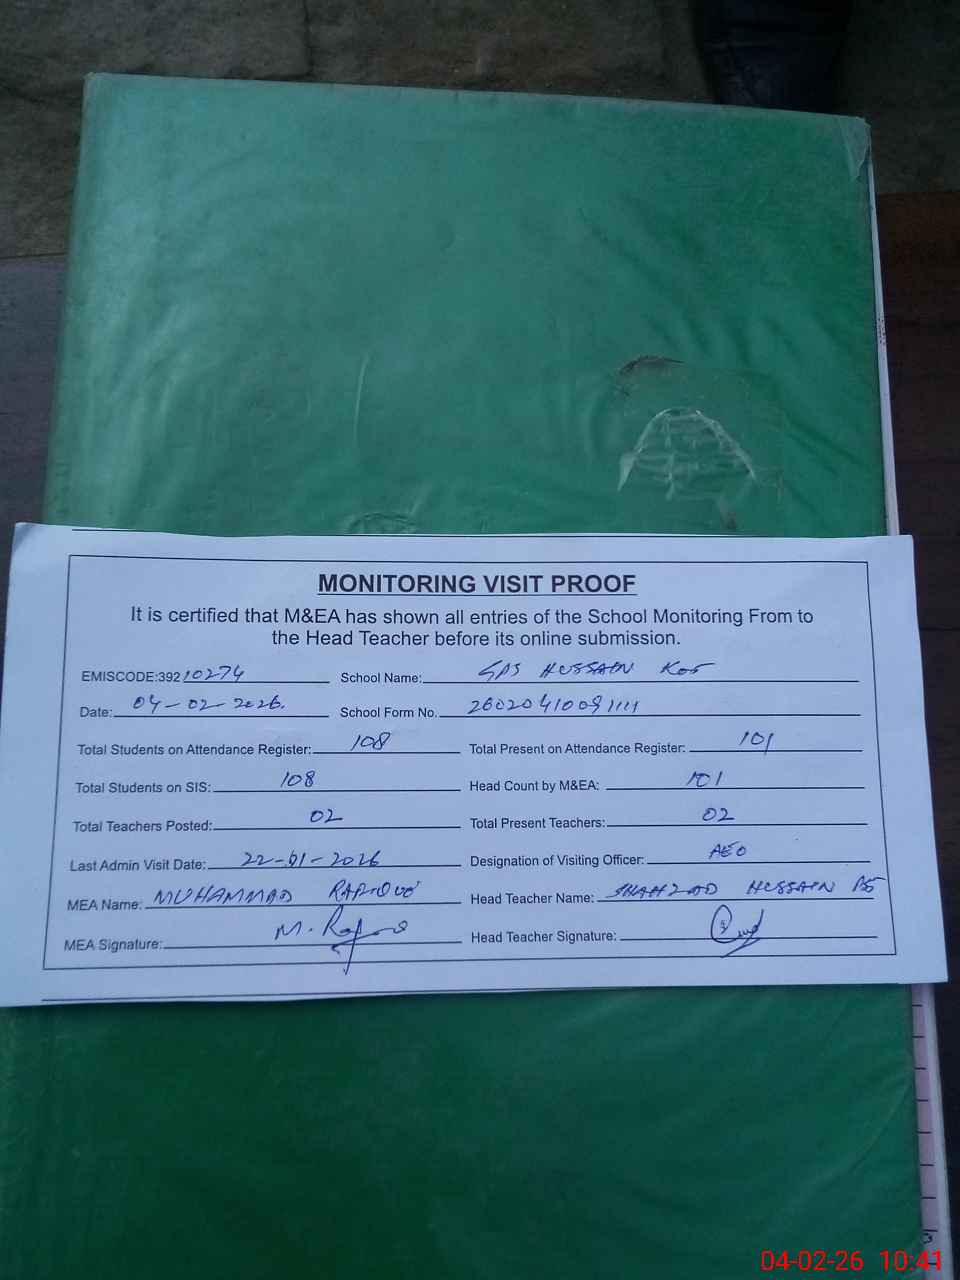 MONITORING VISIT PROOF
It is certified that M&EA has shown all entries of the School Monitoring From to
the Head Teacher before its online submission.
EMISCODE:392 10274 School Name: GPS HUSSAIN KOT
Date: 04-02-2026. School Form No.
Total Students on Attendance Register: 108 Total Present on Attendance Register: 101
Total Students on SIS: 108 Head Count by M&EA: 101
Total Teachers Posted: 02 Total Present Teachers: 02
Last Admin Visit Date: 22-01-2026 Designation of Visiting Officer: AEO
MEA Name: MUHAMMAD Head Teacher Name: SHAHZAD HUSSAIN
MEA Signature: Head Teacher Signature:
04-02-26 10:41